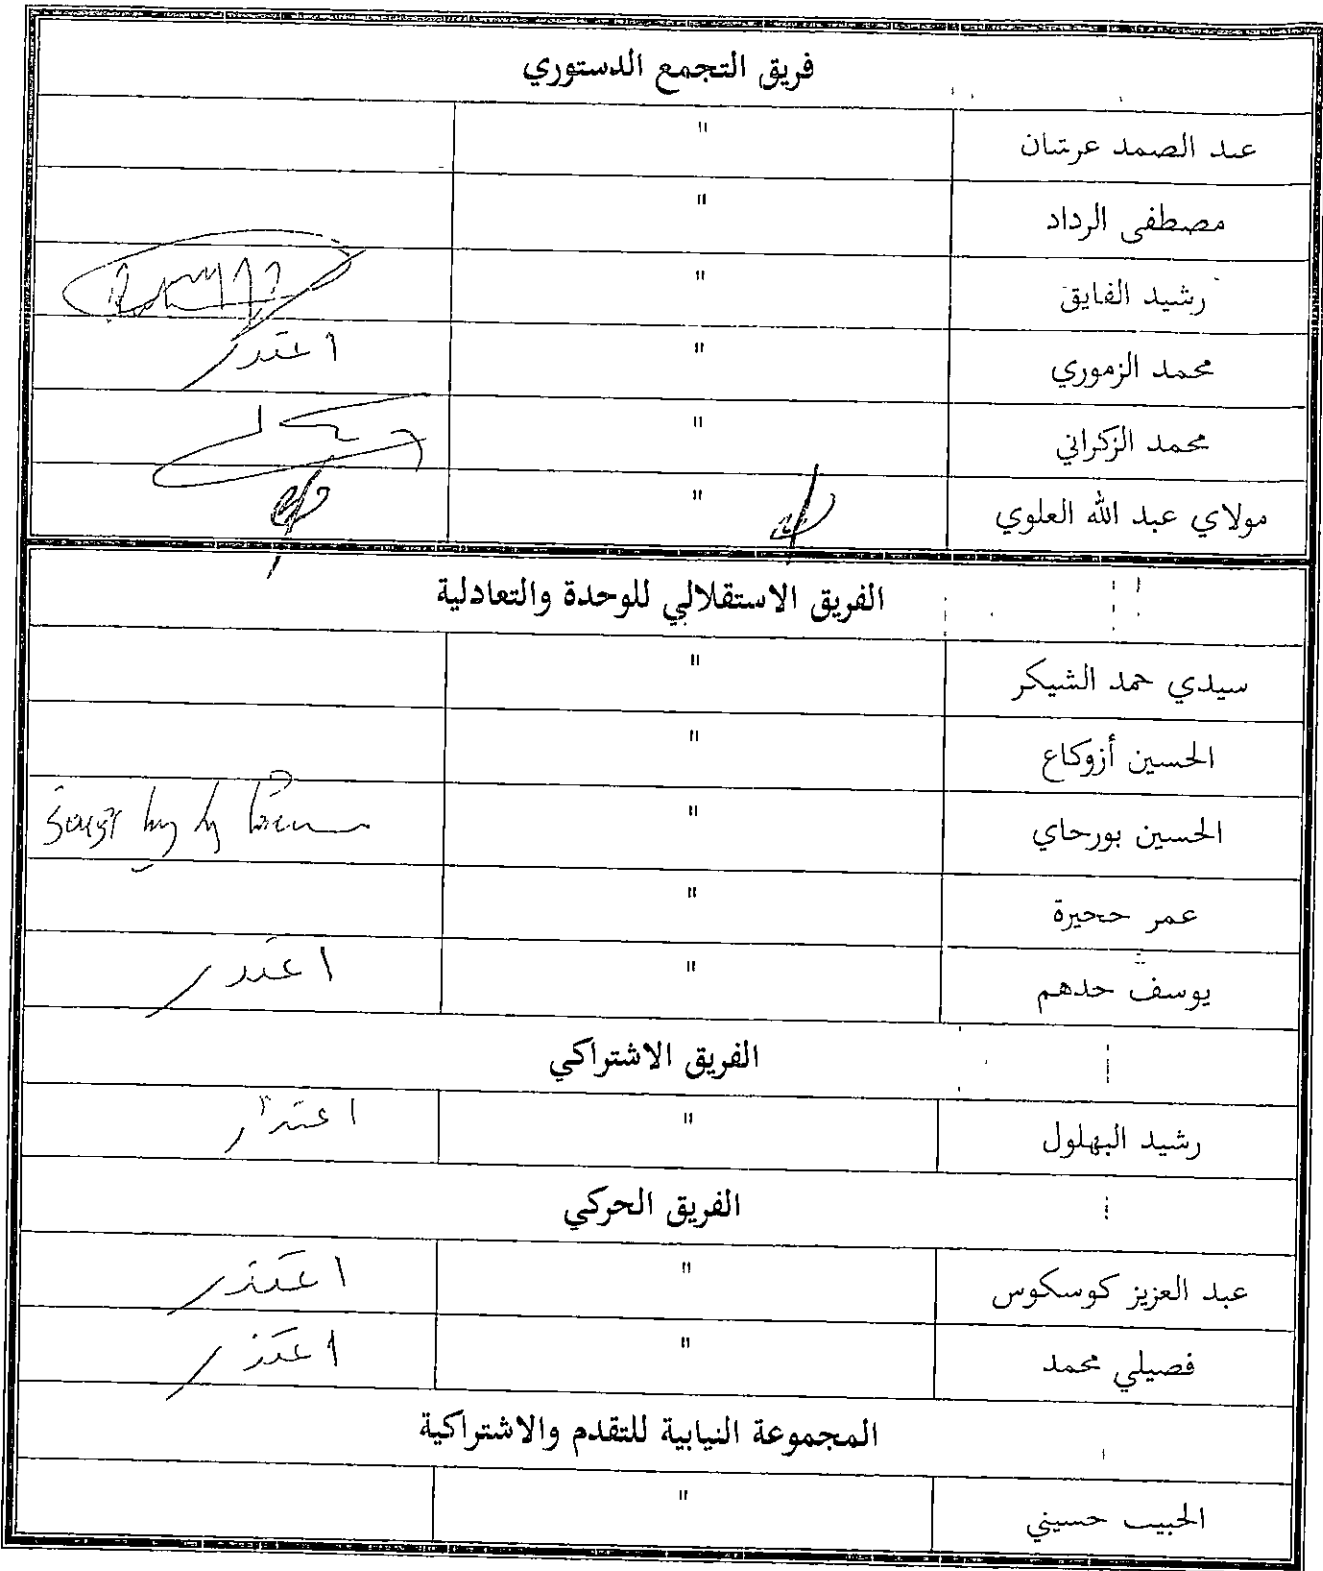 فريق التجمع الدستوري
عبد الصمد عرشان "
مصطفى الرداد "
رشيد الفايق "
محمد الزموري " اعتذر
محمد الزكراني "
مولاي عبد الله العلوي "
الفريق الاستقلالي للوحدة والتعادلية
سيدي حمد الشيكر "
الحسين أزوكاغ "
الحسين بورحاي "
عمر حجيرة "
يوسف حدهم " اعتذر
الفريق الاشتراكي
رشيد البهلول " اعتذر
الفريق الحركي
عبد العزيز كوسكوس " اعتذر
فصيلي محمد " اعتذر
المجموعة النيابية للتقدم والاشتراكية
الحبيب حسيني "